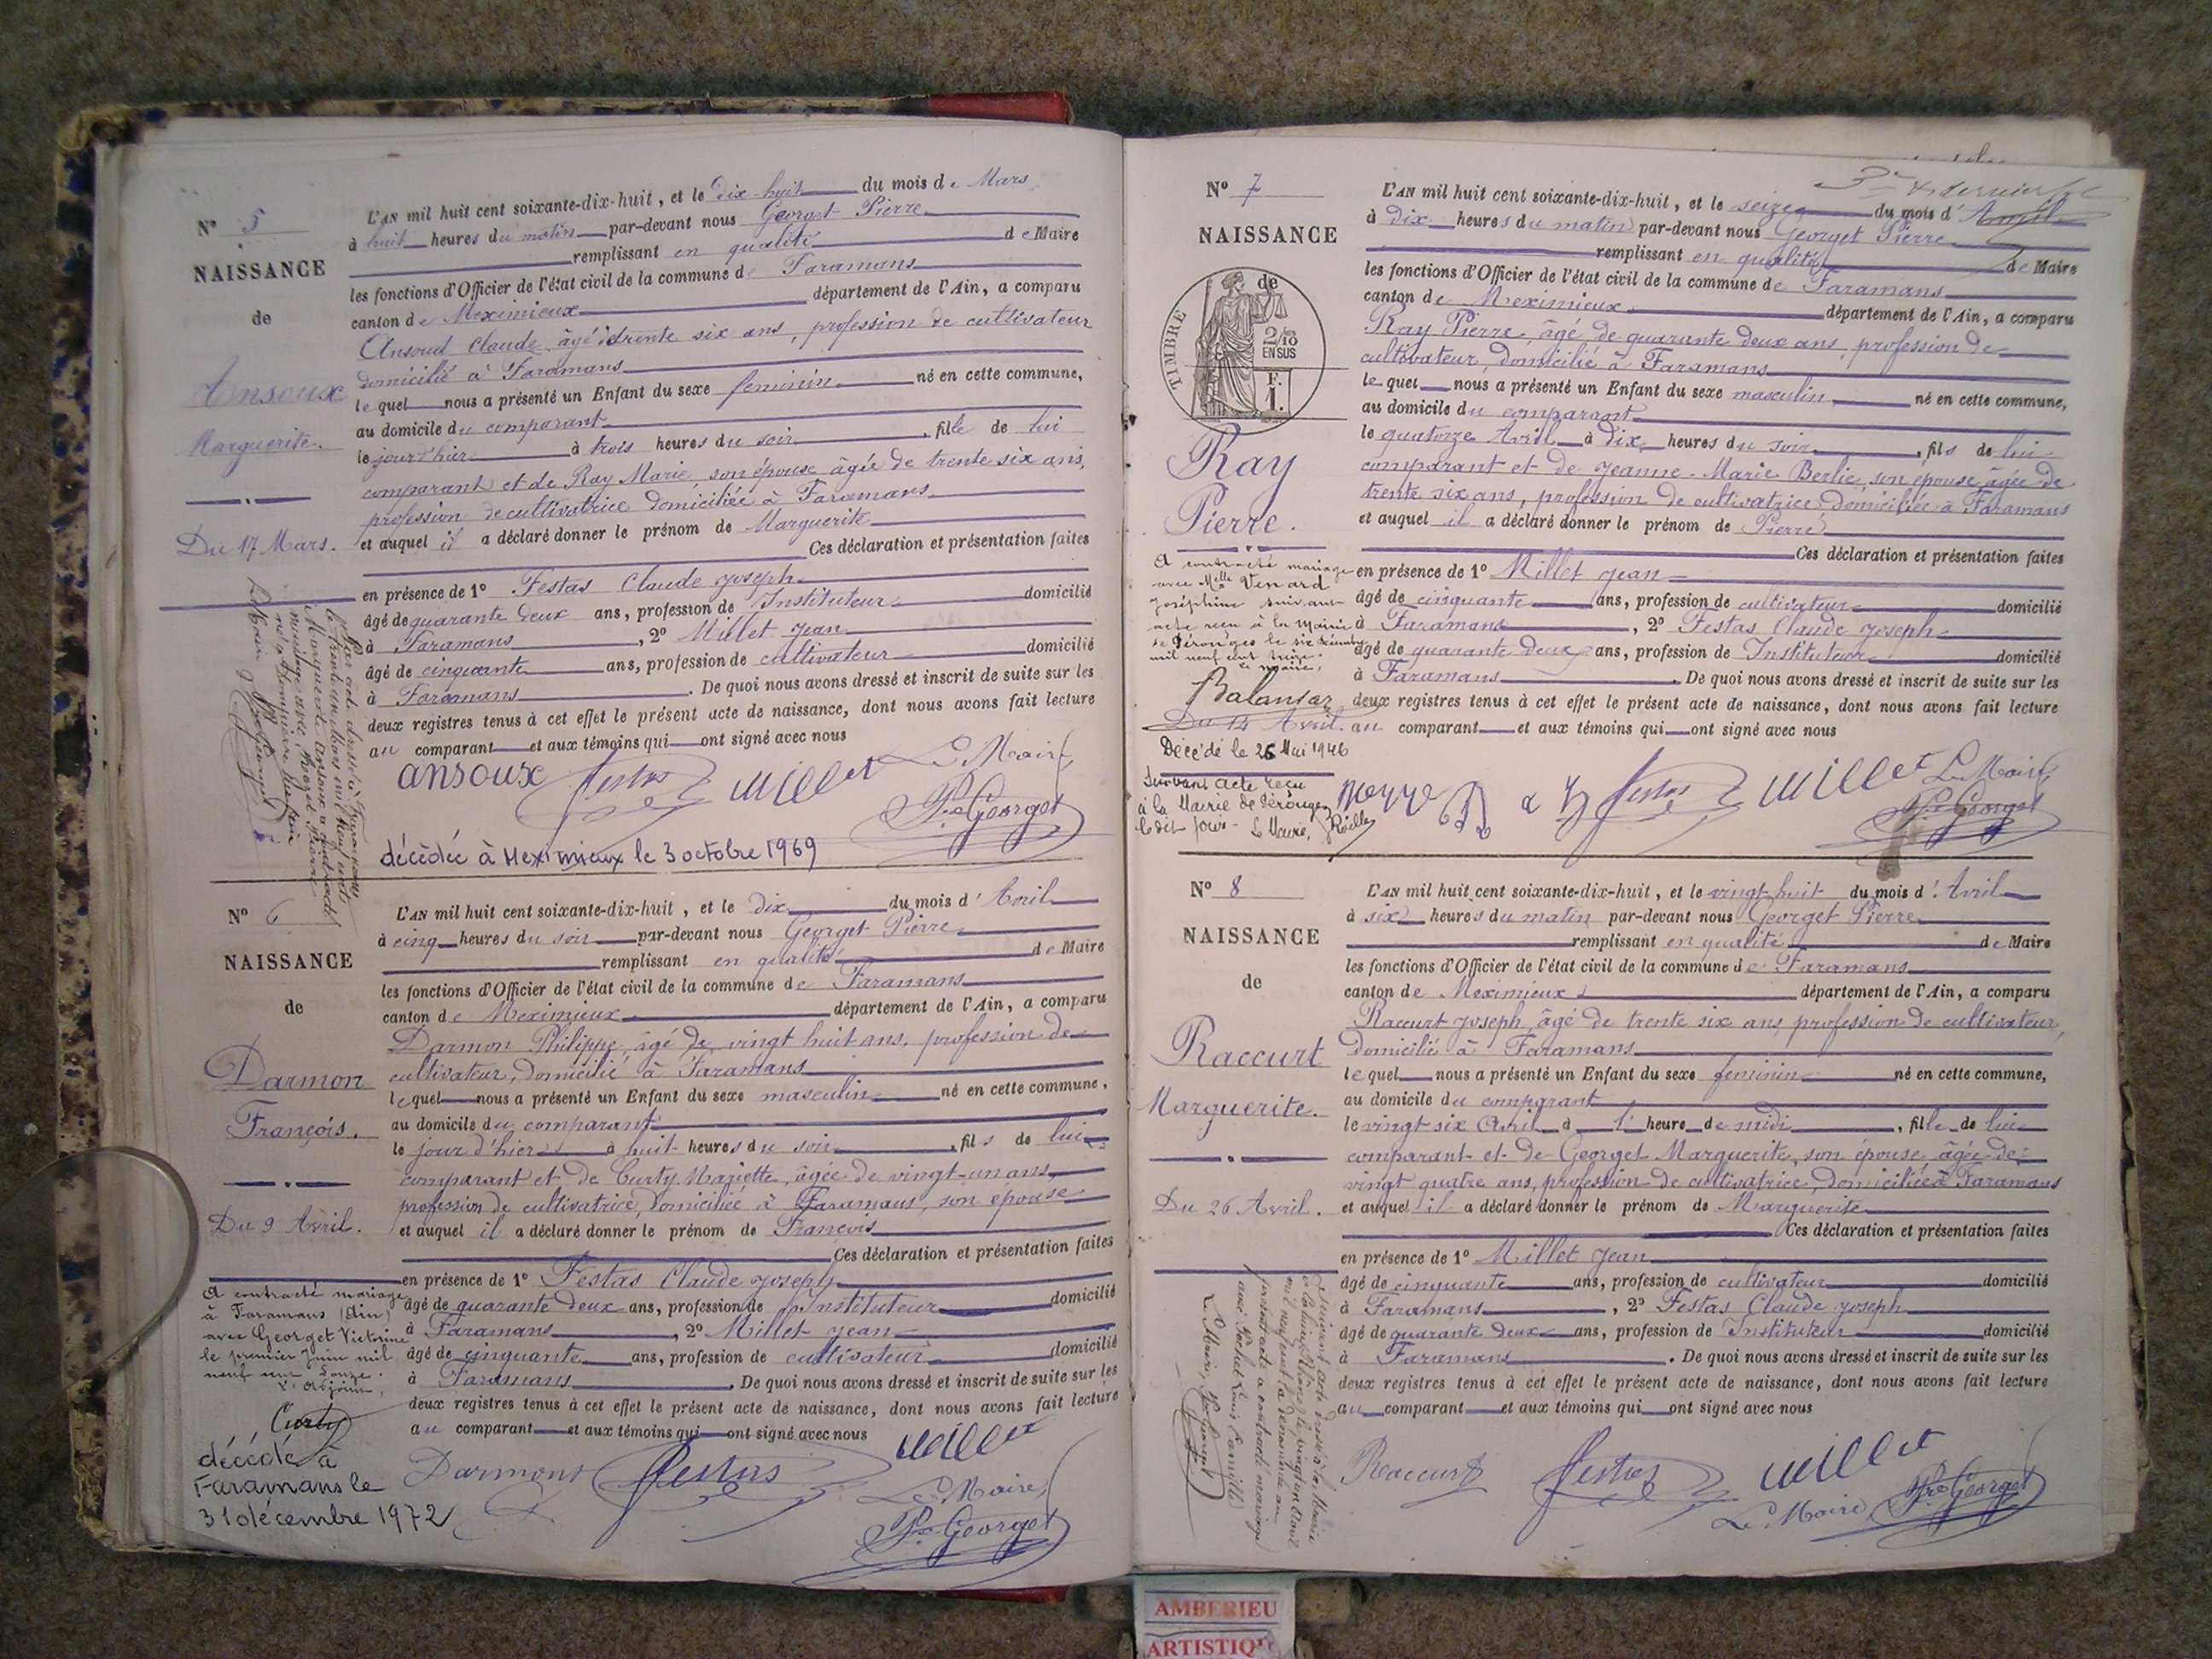 Nº 5
NAISSANCE
de
Ansoux
Marguerite.
Du 17 Mars.
L'AN mil huit cent soixante-dix-huit, et le dix-huit du mois de Mars
à huit heures du matin par-devant nous Georget Pierre
remplissant en qualité de Maire
les fonctions d'Officier de l'état civil de la commune de Faramans
canton de Meximieux département de l'Ain, a comparu
Ansoud Claude âgé de trente six ans, profession de cultivateur
domicilié à Faramans
lequel nous a présenté un Enfant du sexe feminin né en cette commune,
au domicile du comparant
le jour d'hier à trois heures du soir, fille de lui
comparant et de Ray Marie, son épouse âgée de trente six ans,
profession de cultivatrice domiciliée à Faramans
et auquel il a déclaré donner le prénom de Marguerite
Ces déclaration et présentation faites
en présence de 1º Festas Claude Joseph
âgé de quarante deux ans, profession de Instituteur domicilié
à Faramans, 2º Millet Jean
âgé de cinquante ans, profession de cultivateur domicilié
à Faramans. De quoi nous avons dressé et inscrit de suite sur les
deux registres tenus à cet effet le présent acte de naissance, dont nous avons fait lecture
au comparant et aux témoins qui ont signé avec nous
ansoux Festas Millet Le Maire,
Pre Georget
décédée à Meximieux le 3 octobre 1969
Nº 6
NAISSANCE
de
Darmon
François.
Du 9 Avril.
L'AN mil huit cent soixante-dix-huit, et le dix du mois d'Avril
à cinq heures du soir par-devant nous Georget Pierre
remplissant en qualité de Maire
les fonctions d'Officier de l'état civil de la commune de Faramans
canton de Meximieux département de l'Ain, a comparu
Darmon Philippe âgé de vingt huit ans, profession de
cultivateur, domicilié à Faramans
lequel nous a présenté un Enfant du sexe masculin né en cette commune,
au domicile du comparant
le jour d'hier à huit heures du soir, fils de lui
comparant et de Curty Mariette, âgée de vingt-un ans
profession de cultivatrice, domiciliée à Faramans, son épouse
et auquel il a déclaré donner le prénom de François
Ces déclaration et présentation faites
en présence de 1º Festas Claude Joseph
âgé de quarante deux ans, profession de Instituteur domicilié
à Faramans, 2º Millet Jean
âgé de cinquante ans, profession de cultivateur domicilié
à Faramans. De quoi nous avons dressé et inscrit de suite sur les
deux registres tenus à cet effet le présent acte de naissance, dont nous avons fait lecture
au comparant et aux témoins qui ont signé avec nous
A contracté mariage
à Faramans (Ain)
avec Georget Victorine
le premier Juin mil
neuf cent douze.
L'Adjoint,
Curty
décédé à
Faramans le
31 décembre 1972
Darmont Festas Millet
Le Maire,
Pre Georget
Nº 7
NAISSANCE
de
TIMBRE
2/10
EN SUS
F.
1.
Ray
Pierre.
A contracté mariage
avec Melle Venard
Joséphine suivant
acte reçu à la Mairie
de Pérouges le six décembre
mil neuf cent treize.
Le maire,
Balansar
Du 14 Avril.
Décédé le 26 Mai 1946
Suivant acte reçu
à la Mairie de Pérouges
le dit jour - Le Maire,
3e & dernier
L'AN mil huit cent soixante-dix-huit, et le seize du mois d'Avril
à dix heures du matin par-devant nous Georget Pierre
remplissant en qualité de Maire
les fonctions d'Officier de l'état civil de la commune de Faramans
canton de Meximieux département de l'Ain, a comparu
Ray Pierre, âgé de quarante deux ans, profession de
cultivateur, domicilié à Faramans
lequel nous a présenté un Enfant du sexe masculin né en cette commune,
au domicile du comparant
le quatorze Avril à dix heures du soir, fils de lui
comparant et de Jeanne-Marie Berlie, son épouse âgée de
trente six ans, profession de cultivatrice, domiciliée à Faramans
et auquel il a déclaré donner le prénom de Pierre
Ces déclaration et présentation faites
en présence de 1º Millet Jean
âgé de cinquante ans, profession de cultivateur domicilié
à Faramans, 2º Festas Claude Joseph
âgé de quarante deux ans, profession de Instituteur domicilié
à Faramans. De quoi nous avons dressé et inscrit de suite sur les
deux registres tenus à cet effet le présent acte de naissance, dont nous avons fait lecture
au comparant et aux témoins qui ont signé avec nous
Festas Millet Le Maire,
Pre Georget
Nº 8
NAISSANCE
de
Raccurt
Marguerite.
Du 26 Avril.
L'AN mil huit cent soixante-dix-huit, et le vingt huit du mois d'Avril
à six heures du matin par-devant nous Georget Pierre
remplissant en qualité de Maire
les fonctions d'Officier de l'état civil de la commune de Faramans
canton de Meximieux département de l'Ain, a comparu
Raccurt Joseph, âgé de trente six ans, profession de cultivateur,
domicilié à Faramans
lequel nous a présenté un Enfant du sexe feminin né en cette commune,
au domicile du comparant
le vingt six Avril à l' heure de midi, fille de lui
comparant et de Georget Marguerite, son épouse âgée de
vingt quatre ans, profession de cultivatrice, domiciliée à Faramans
et auquel il a déclaré donner le prénom de Marguerite
Ces déclaration et présentation faites
en présence de 1º Millet Jean
âgé de cinquante ans, profession de cultivateur domicilié
à Faramans, 2º Festas Claude Joseph
âgé de quarante deux ans, profession de Instituteur domicilié
à Faramans. De quoi nous avons dressé et inscrit de suite sur les
deux registres tenus à cet effet le présent acte de naissance, dont nous avons fait lecture
au comparant et aux témoins qui ont signé avec nous
Raccurt Festas Millet
Le Maire, Pre Georget
AMBERIEU
ARTISTIQ